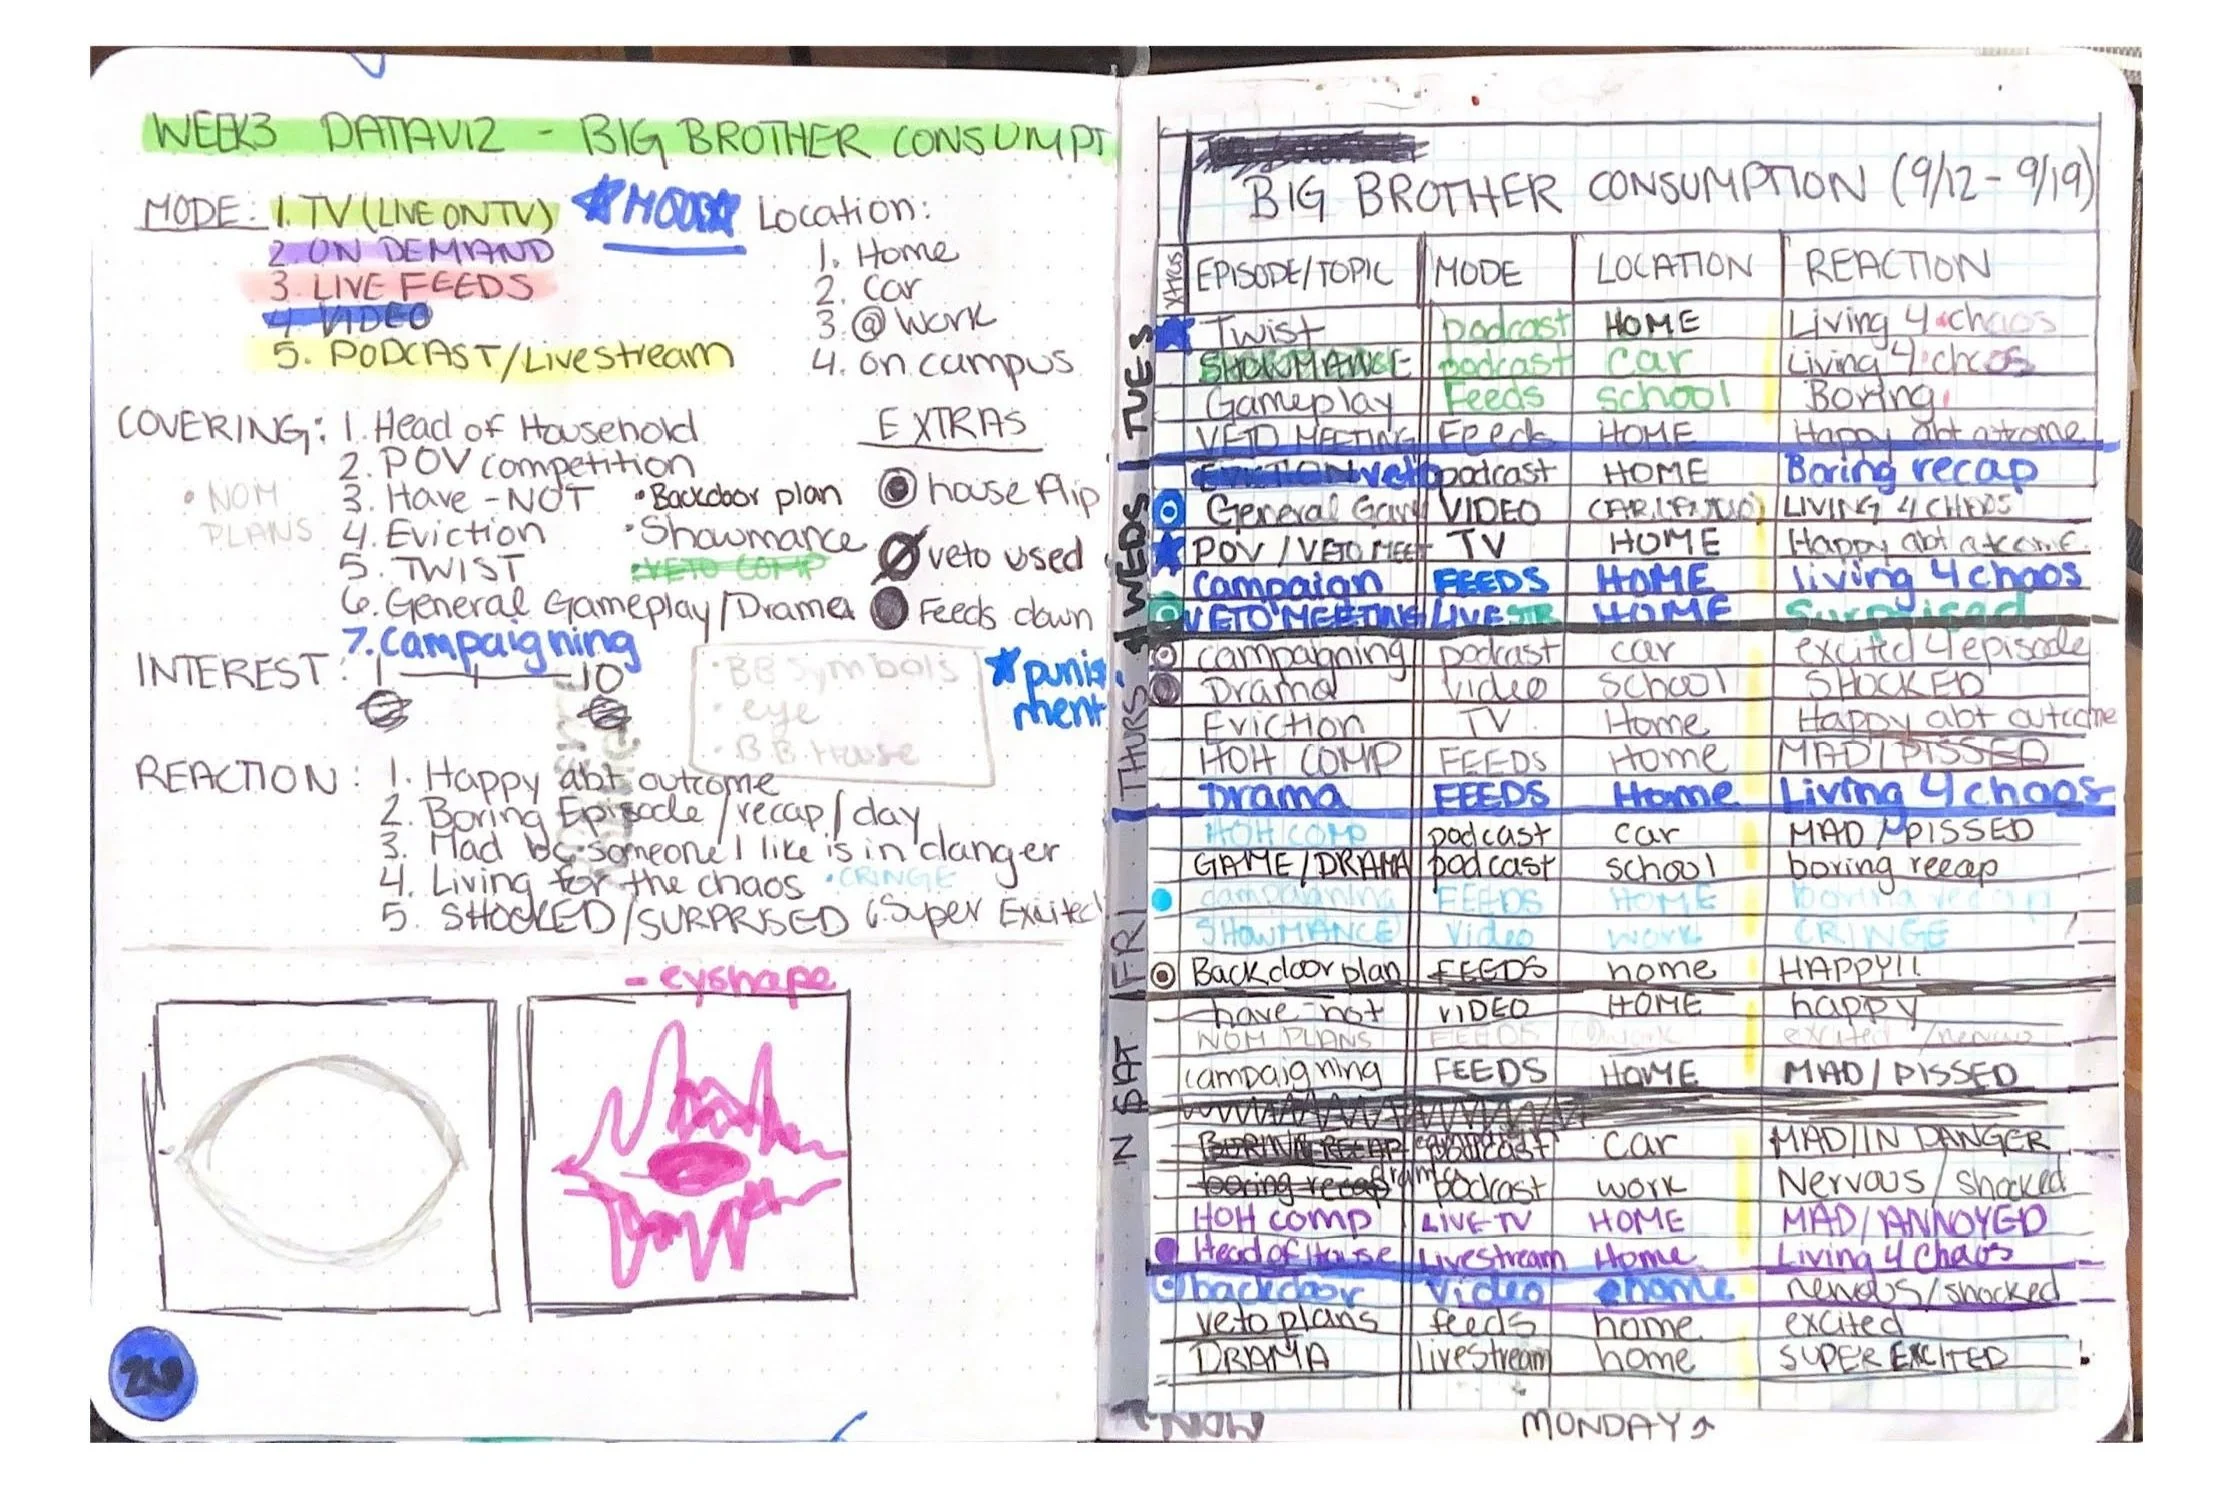 WEEK3 DATAVIZ - BIG BROTHER CONSUMPT
MODE: 1. TV (LIVE ON TV)
2. ON DEMAND
3. LIVE FEEDS
4 VIDEO
5. PODCAST/Livestream
MOOD
Location:
1. Home
2. Car
3. @ Work
4. on campus
COVERING: 1. Head of Household
2. POV competition
3. Have-NOT
4. Eviction
5. TWIST
6. General Gameplay/Drama
7. Campaigning
• NOM
PLANS
• Backdoor plan
• Showmance
• VETO COMP
EXTRAS
house flip
veto used
Feeds down
punis
ment
INTEREST: 1 10
• BB Symbols
• eye
• B.B. House
REACTION: 1. Happy abt outcome
2. Boring Episode/recap/day
3. Mad bc someone I like is in danger
4. Living for the chaos • CRINGE
5. SHOCKED/SURPRISED 6. Super Excited
- eyshape
BIG BROTHER CONSUMPTION (9/12 - 9/19)
xtras EPISODE/TOPIC MODE LOCATION REACTION
TUES
Twist podcast HOME Living 4 chaos
SHOWMANCE podcast car Living 4 chaos
Gameplay Feeds school Boring
VETO MEETING Feeds HOME Happy abt outcome
WEDS
veto podcast HOME Boring recap
General Gam VIDEO CAR LIVING 4 CHAOS
POV / VETO MEET TV HOME Happy abt
campaign FEEDS HOME living 4 chaos
VETO MEETING LIVESTR HOME Surprised
THURS
campaigning podcast car excited 4 episode
Drama video school SHOCKED
Eviction TV Home Happy abt outcome
HOH COMP FEEDS Home MAD/PISSED
Drama FEEDS Home Living 4 chaos
FRI
HOH COMP podcast car MAD/PISSED
GAME/DRAMA podcast school boring recap
campaigning FEEDS HOME boring recap
SHOWMANCE video work CRINGE
Backdoor plan FEEDS home HAPPY!!
SAT
have-not VIDEO HOME happy
NOM PLANS FEEDS @work excited/nervous
campaigning FEEDS HOME MAD/PISSED
BORING RECAP podcast car MAD/IN DANGER
boring recap drama podcast work Nervous/shocked
HOH comp LIVE TV HOME MAD/ANNOYED
Head of House Livestream Home Living 4 Chaos
backdoor Video home nervous/shocked
veto plans feeds home excited
DRAMA livestream home SUPER EXCITED
MONDAY